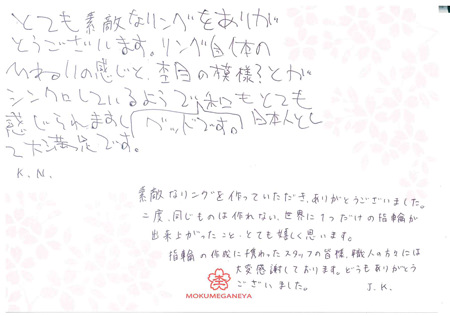 とても素敵なリングをありが
とうございます。リング自体の
ひねりの感じと、杢目の模様?とが
シンクロしているようで和もとても
感じられますし グッドです。日本人とし
て大満足です。
K.N.
素敵なリングを作っていただき、ありがとうございました。
二度、同じものは作れない、世界に1つだけの指輪が
出来上がったこと、とても嬉しく思います。
指輪の作成に携わったスタッフの皆様、職人の方々には
大変感謝しております。どうもありがとう
ございました。 J.K.
杢
MOKUMEGANEYA